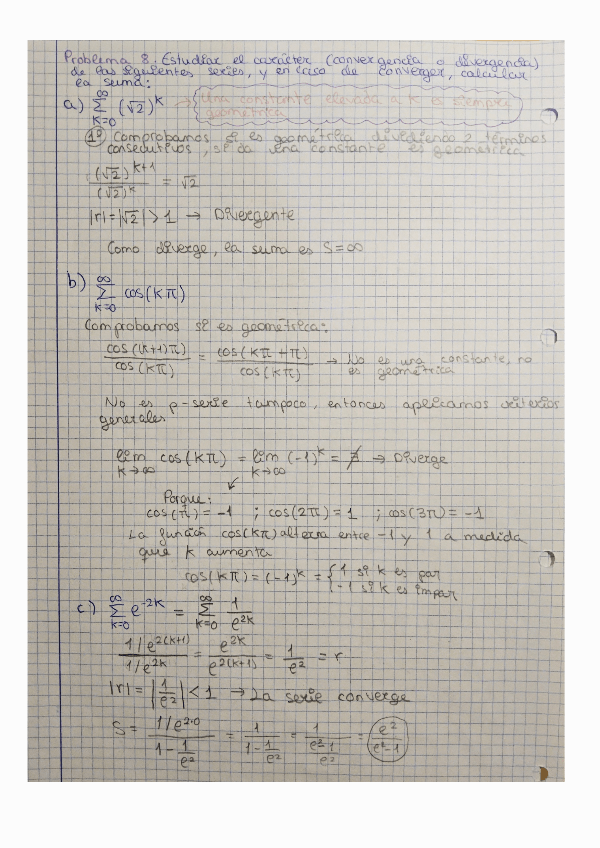 Problema 8. Estudiar el carácter (convergencia o divergencia)
de las siguientes series, y en caso de converger, calcular
la suma:
a) ∞∑k=0 (√2)^k → Una constante elevada a k es siempre
geométrica
1º Comprobamos si es geométrica dividiendo 2 términos
consecutivos, si da una constante es geométrica
(√2)^(k+1) / (√2)^k = √2
|r| = |√2| > 1 → Divergente
Como diverge, la suma es S = ∞
b) ∞∑k=0 cos(kπ)
Comprobamos si es geométrica:
cos((k+1)π) / cos(kπ) = cos(kπ+π) / cos(kπ) → No es una constante, no
es geométrica
No es p-serie tampoco, entonces aplicamos criterios
generales
lim k→∞ cos(kπ) = lim k→∞ (-1)^k = ∄ → Diverge
Porque:
cos(π) = -1 ; cos(2π) = 1 ; cos(3π) = -1
La función cos(kπ) alterna entre -1 y 1 a medida
que k aumenta
cos(kπ) = (-1)^k = { 1 si k es par
-1 si k es impar
c) ∞∑k=0 e^(-2k) = ∞∑k=0 1/e^(2k)
1/e^(2(k+1)) / 1/e^(2k) = e^(2k) / e^(2(k+1)) = 1/e² = r
|r| = |1/e²| < 1 → La serie converge
S = 1/e^(2·0) / (1 - 1/e²) = 1 / (1 - 1/e²) = 1 / (e²-1 / e²) = e² / (e²-1)